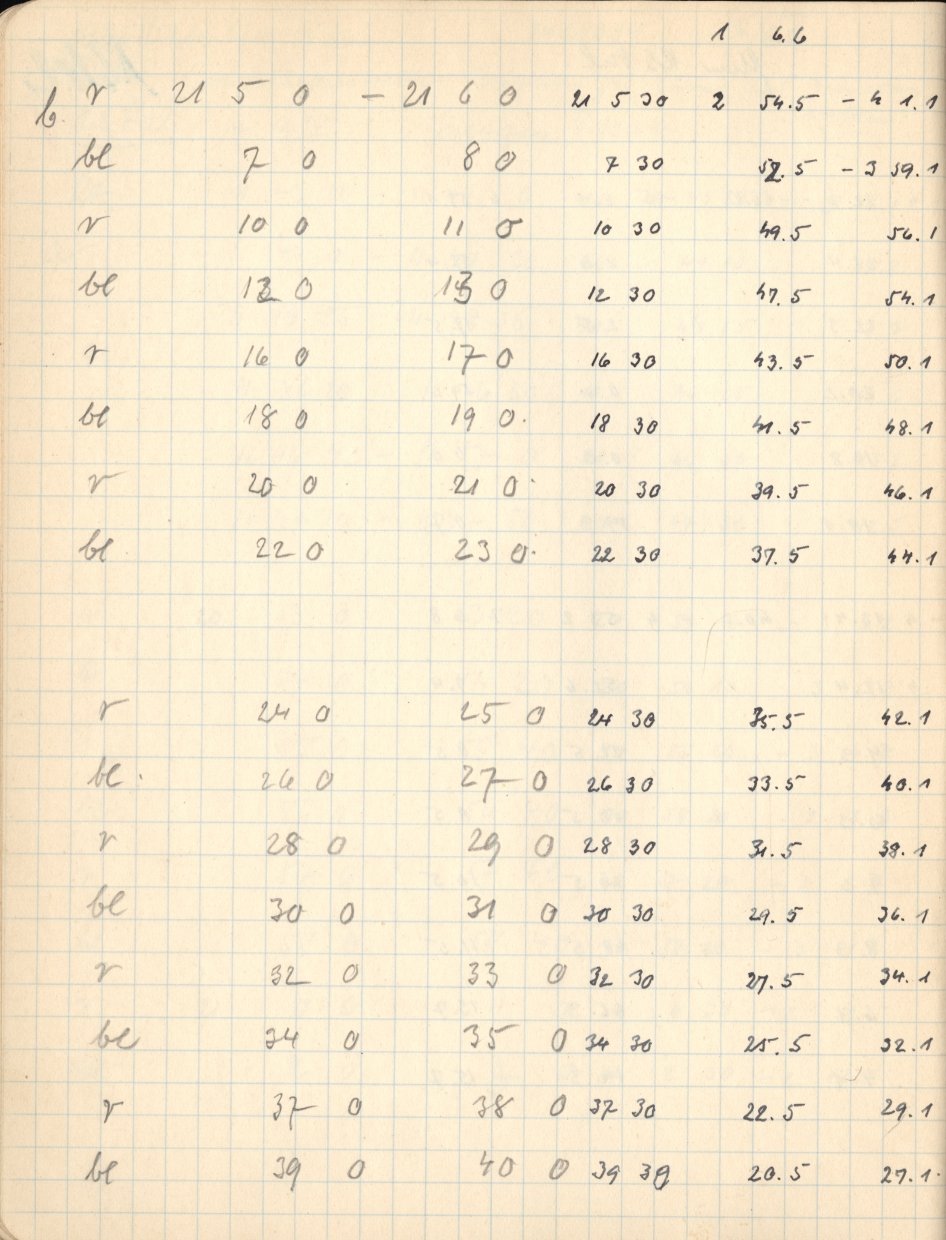 1 6.6
b. r 21 5 0 – 21 6 0 21 5 30 2 54.5 – 4 1.1
bl 7 0 8 0 7 30 52.5 – 3 59.1
r 10 0 11 0 10 30 49.5 56.1
bl 12 0 13 0 12 30 47.5 54.1
r 16 0 17 0 16 30 43.5 50.1
bl 18 0 19 0. 18 30 41.5 48.1
r 20 0 21 0. 20 30 39.5 46.1
bl 22 0 23 0. 22 30 37.5 44.1
r 24 0 25 0 24 30 35.5 42.1
bl. 26 0 27 0 26 30 33.5 40.1
r 28 0 29 0 28 30 31.5 38.1
bl 30 0 31 0 30 30 29.5 36.1
r 32 0 33 0 32 30 27.5 34.1
bl 34 0 35 0 34 30 25.5 32.1
r 37 0 38 0 37 30 22.5 29.1
bl 39 0 40 0 39 30 20.5 27.1.